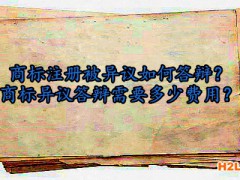 商标注册被异议如何答辩?
商标异议答辩需要多少费用?
H2L